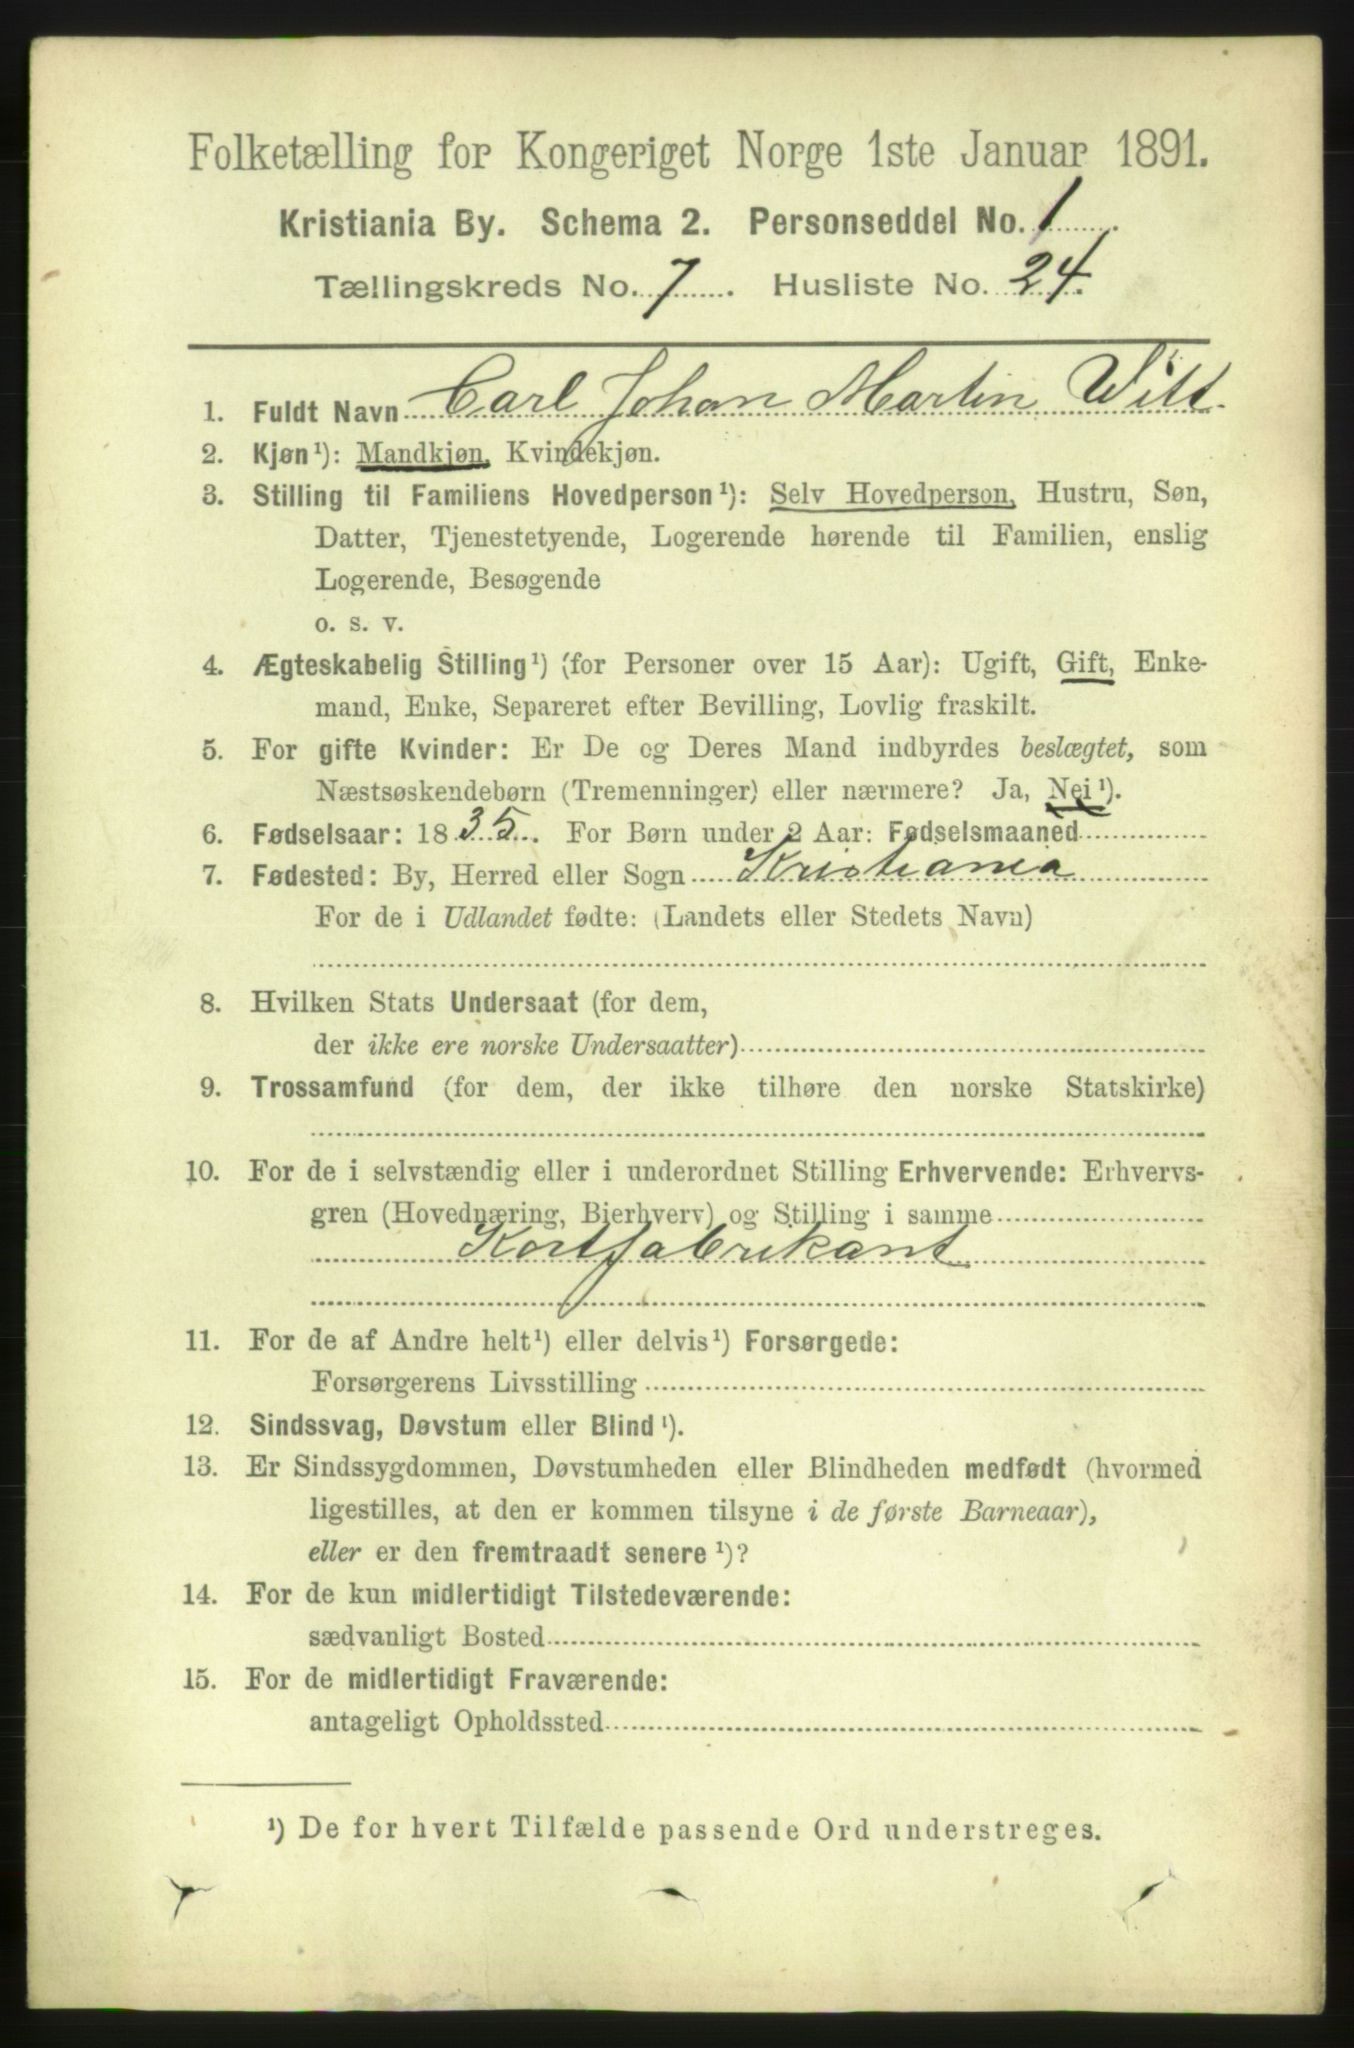 Folketælling for Kongeriget Norge 1ste Januar 1891.
Kristiania By. Schema 2. Personseddel No. 1
Tællingskreds No. 7. Husliste No. 24.
1. Fuldt Navn Carl Johan Martin Witt.
2. Kjøn¹): Mandkjøn, Kvindekjøn.
3. Stilling til Familiens Hovedperson¹): Selv Hovedperson, Hustru, Søn,
Datter, Tjenestetyende, Logerende hørende til Familien, enslig
Logerende, Besøgende
o. s. v.
4. Ægteskabelig Stilling¹) (for Personer over 15 Aar): Ugift, Gift, Enke-
mand, Enke, Separeret efter Bevilling, Lovlig fraskilt.
5. For gifte Kvinder: Er De og Deres Mand indbyrdes beslægtet, som
Næstsøskendebørn (Tremenninger) eller nærmere? Ja, Nei¹).
6. Fødselsaar: 1835. For Børn under 2 Aar: Fødselsmaaned
7. Fødested: By, Herred eller Sogn Kristiania
For de i Udlandet fødte: (Landets eller Stedets Navn)
8. Hvilken Stats Undersaat (for dem,
der ikke ere norske Undersaatter)
9. Trossamfund (for dem, der ikke tilhøre den norske Statskirke)
10. For de i selvstændig eller i underordnet Stilling Erhvervende: Erhvervs-
gren (Hovednæring, Bierhverv) og Stilling i samme
Kortfabrikant
11. For de af Andre helt¹) eller delvis¹) Forsørgede:
Forsørgerens Livsstilling
12. Sindssvag, Døvstum eller Blind¹).
13. Er Sindssygdommen, Døvstumheden eller Blindheden medfødt (hvormed
ligestilles, at den er kommen tilsyne i de første Barneaar),
eller er den fremtraadt senere¹)?
14. For de kun midlertidigt Tilstedeværende:
sædvanligt Bosted
15. For de midlertidigt Fraværende:
antageligt Opholdssted
¹) De for hvert Tilfælde passende Ord understreges.